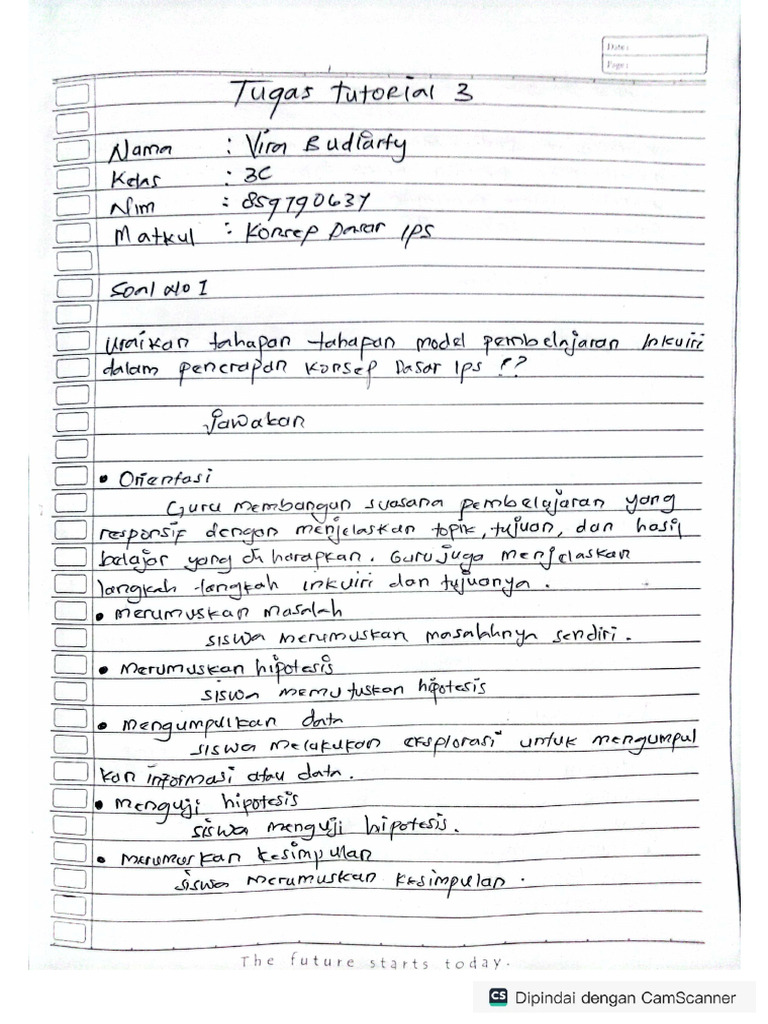 Date:
Page:
Tugas tutorial 3
Nama : Vira Budiarty
Kelas : 3C
Nim : 859790637
Matkul : Konsep Dasar IPS
Soal No 1
Uraikan tahapan tahapan model pembelajaran Inkuiri
dalam penerapan Konsep Dasar Ips !?
Jawakan
• Orientasi
Guru membangun suasana pembelajaran yang
responsif dengan menjelaskan topik, tujuan, dan hasil
belajar yang di harapkan. Guru juga menjelaskan
langkah -langkah inkuiri dan tujuanya.
• merumuskan masalah
siswa merumuskan masalahnya sendiri.
• merumuskan hipotesis
siswa memutuskan hipotesis
• mengumpulkan data
siswa melakukan eksplorasi untuk mengumpul
kan informasi atau data.
• menguji hipotesis
siswa menguji hipotesis.
• merumuskan kesimpulan
siswa merumuskan kesimpulan.
The future starts today.
CS Dipindai dengan CamScanner